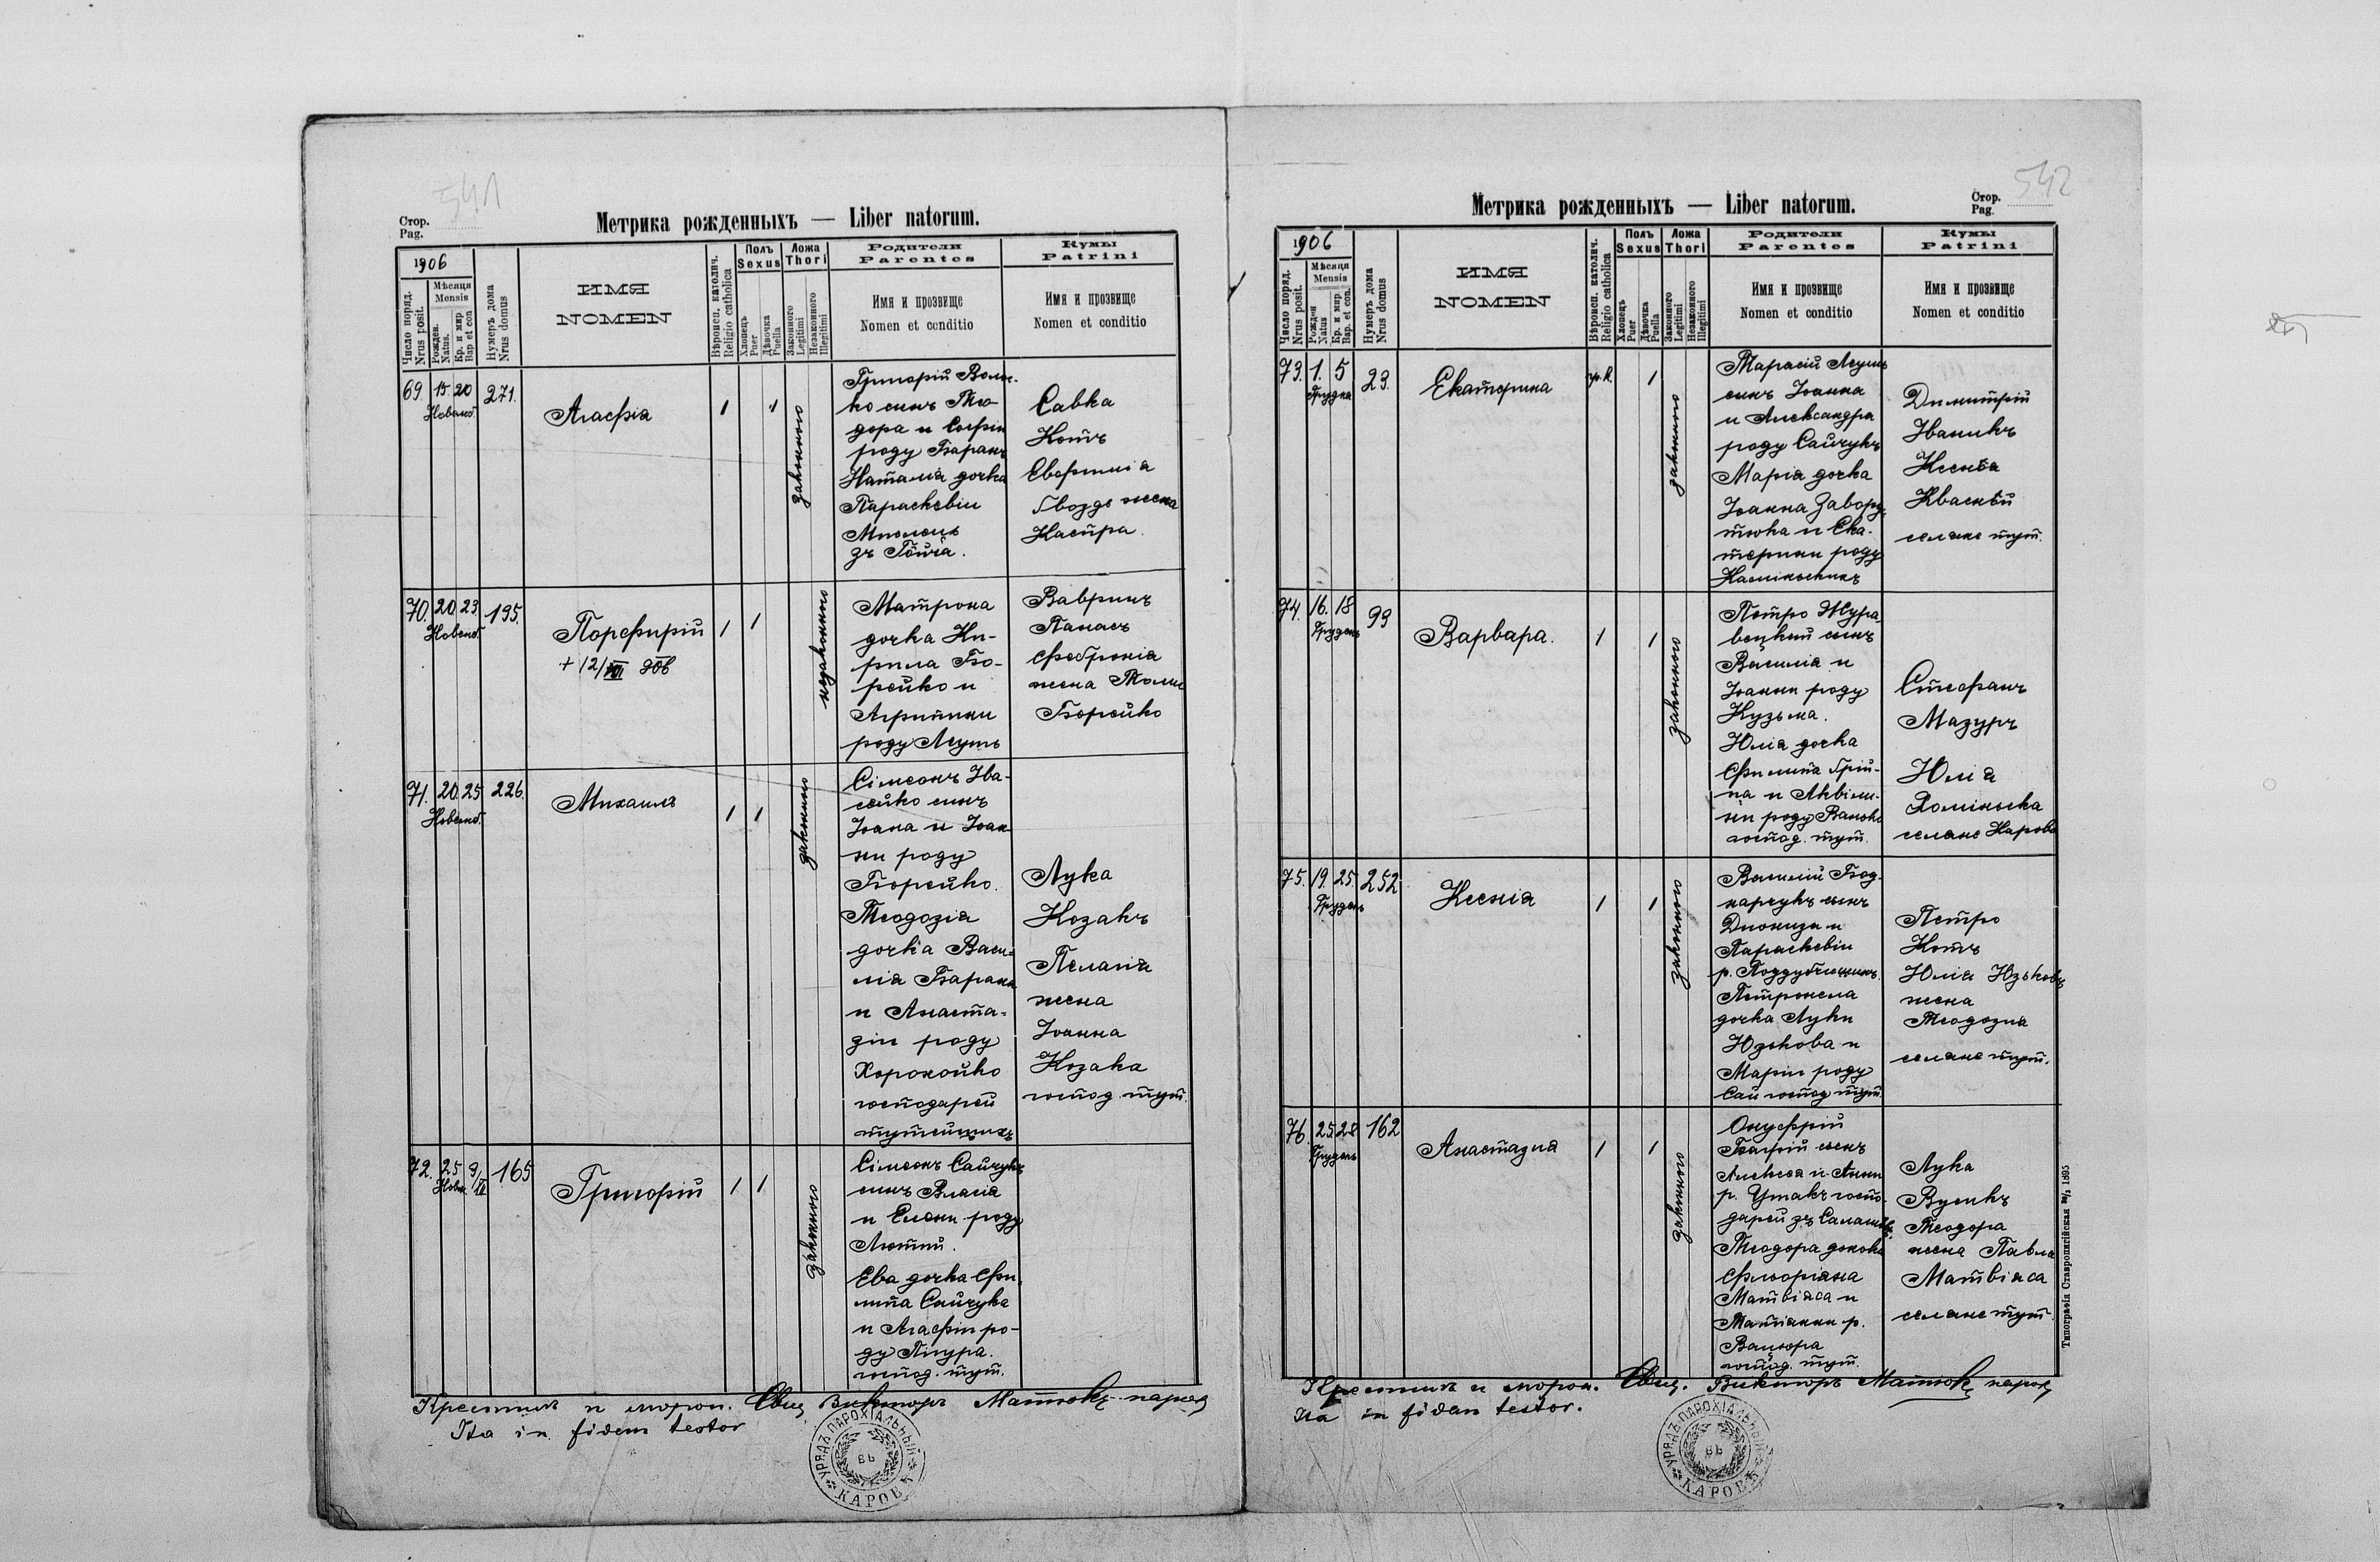 541
Стор.
Pag.
Метрика рожденныхъ — Liber natorum.
1906
Число поряд.
Nrus posit.
Мѣсяця
Mensis
Рожден.
Natus.
Кр. и мир
Bap et con
Нумеръ дома
Nrus domus
ИМЯ
NOMEN
Вѣроисп. католич.
Religio catholica
Полъ
Sexus
Хлопець
Puer
Дѣвочка
Puella
Ложа
Thori
Законного
Legitimi
Незаконного
Illegitimi
Родители
Parentes
Имя и прозвище
Nomen et conditio
Кумы
Patrini
Имя и прозвище
Nomen et conditio
69. 15. 20 271.
Новемб.
Агафія
1 1
законного
Григорій
ко сынъ Тео-
дора и Софіи
роду Баранъ
Наталія дочка
Параскевіи
Савка
Котъ
Евфимія
Гвоздь жена
Каспра.
70. 20. 23. 195.
Новемб.
Порфирій
+ 12/
1 1
незаконного
Матрона
дочка Ки-
рила Бо-
рейко и
Агрипини
роду Леусь
Вавринъ
Панасъ
Февронія
жена
Борейко
71. 20. 25. 226.
Новемб.
Михаилъ
1 1
законного
Сімеонъ Іва-
сейко сынъ
Іоана и Іоан-
ни роду
Борейко.
Теодозія
дочка Васи-
лія Барана
и Анаста-
зіи роду
господарей
тутейшихъ
Лука
Козакъ
Пелагія
жена
Іоанна
Козака
господ. тут.
72. 25 9/XII 165
Новем.
Григорій
1 1
законного
Сімеонъ Сайчукъ
сынъ Власія
и Елени роду
Лютий.
Ева дочка Фи-
липа Сайчука
и Агафіи ро-
ду Пігура.
господ. тут.
Крестилъ и миров. Свящ Викторъ Матюкъ парох
Ita in fidem testor
УРЯДЪ ПАРОХІАЛЬНЫЙ
ВЬ
КАРОВѢ
542
Стор.
Pag.
Метрика рожденныхъ — Liber natorum.
1906
Число поряд.
Nrus posit.
Мѣсяця
Mensis
Рожден
Natus
Кр. и мир.
Bap. et con.
Нумеръ дома
Nrus domus
ИМЯ
NOMEN
Вѣроисп. католич.
Religio catholica
Полъ
Sexus
Хлопець
Puer
Дѣвочка
Puella
Ложа
Thori
Законного
Legitimi
Незаконного
Illegitimi
Родители
Parentes
Имя и прозвище
Nomen et conditio
Кумы
Patrini
Имя и прозвище
Nomen et conditio
73. 1. 5 23.
Грудня
Екатерина
гр. к. 1
законного
Тарасій Леусь
сынъ Іоанна
и Александра
роду Сайчукъ
Марія дочка
Іоанна Заворо-
тюка и Ека-
терини роду
Димитрій
Іваникъ
Ксенія
Кваснѣй
селяне тут.
74. 16. 18 99
Грудень
Варвара.
1 1
законного
Петро Жура-
вецкий сынъ
Василія и
Іоанни роду
Кузьма.
Юлія дочка
Филипа Грій-
ца и Аквіли-
ни роду
господ. тут.
Стефанъ
Мазуръ
Юлія
Хоміньска
селяне Карова
75. 19. 25. 252
Грудень
Ксенія
1 1
законного
Василій Бод-
нарчукъ сынъ
Дионизи и
Параскевіи
Петронела
дочка Луки
Юзькова и
Маріи роду
Сай господ тут.
Петро
Котъ
Юлія Юзьковъ
жена
Теодозия
селяне тут.
76. 25 28 162
Грудень
Анастазия
1 1
законного
Онуфрій
сынъ
Алексея и Анни
р. Ушакъ госпо-
дарей
Теодора
Фльоріяна
Матвіяса и
Матіанни р.
Вацюра
господ. тут.
Лука
Вуйкъ
Теодора
жена Павла
Матвіяса
селяне тут
Крестилъ и миров. Свящ. Викторъ Матюкъ парох
Ita in fidem testor.
УРЯДЪ ПАРОХІАЛЬНЫЙ
ВЬ
КАРОВѢ